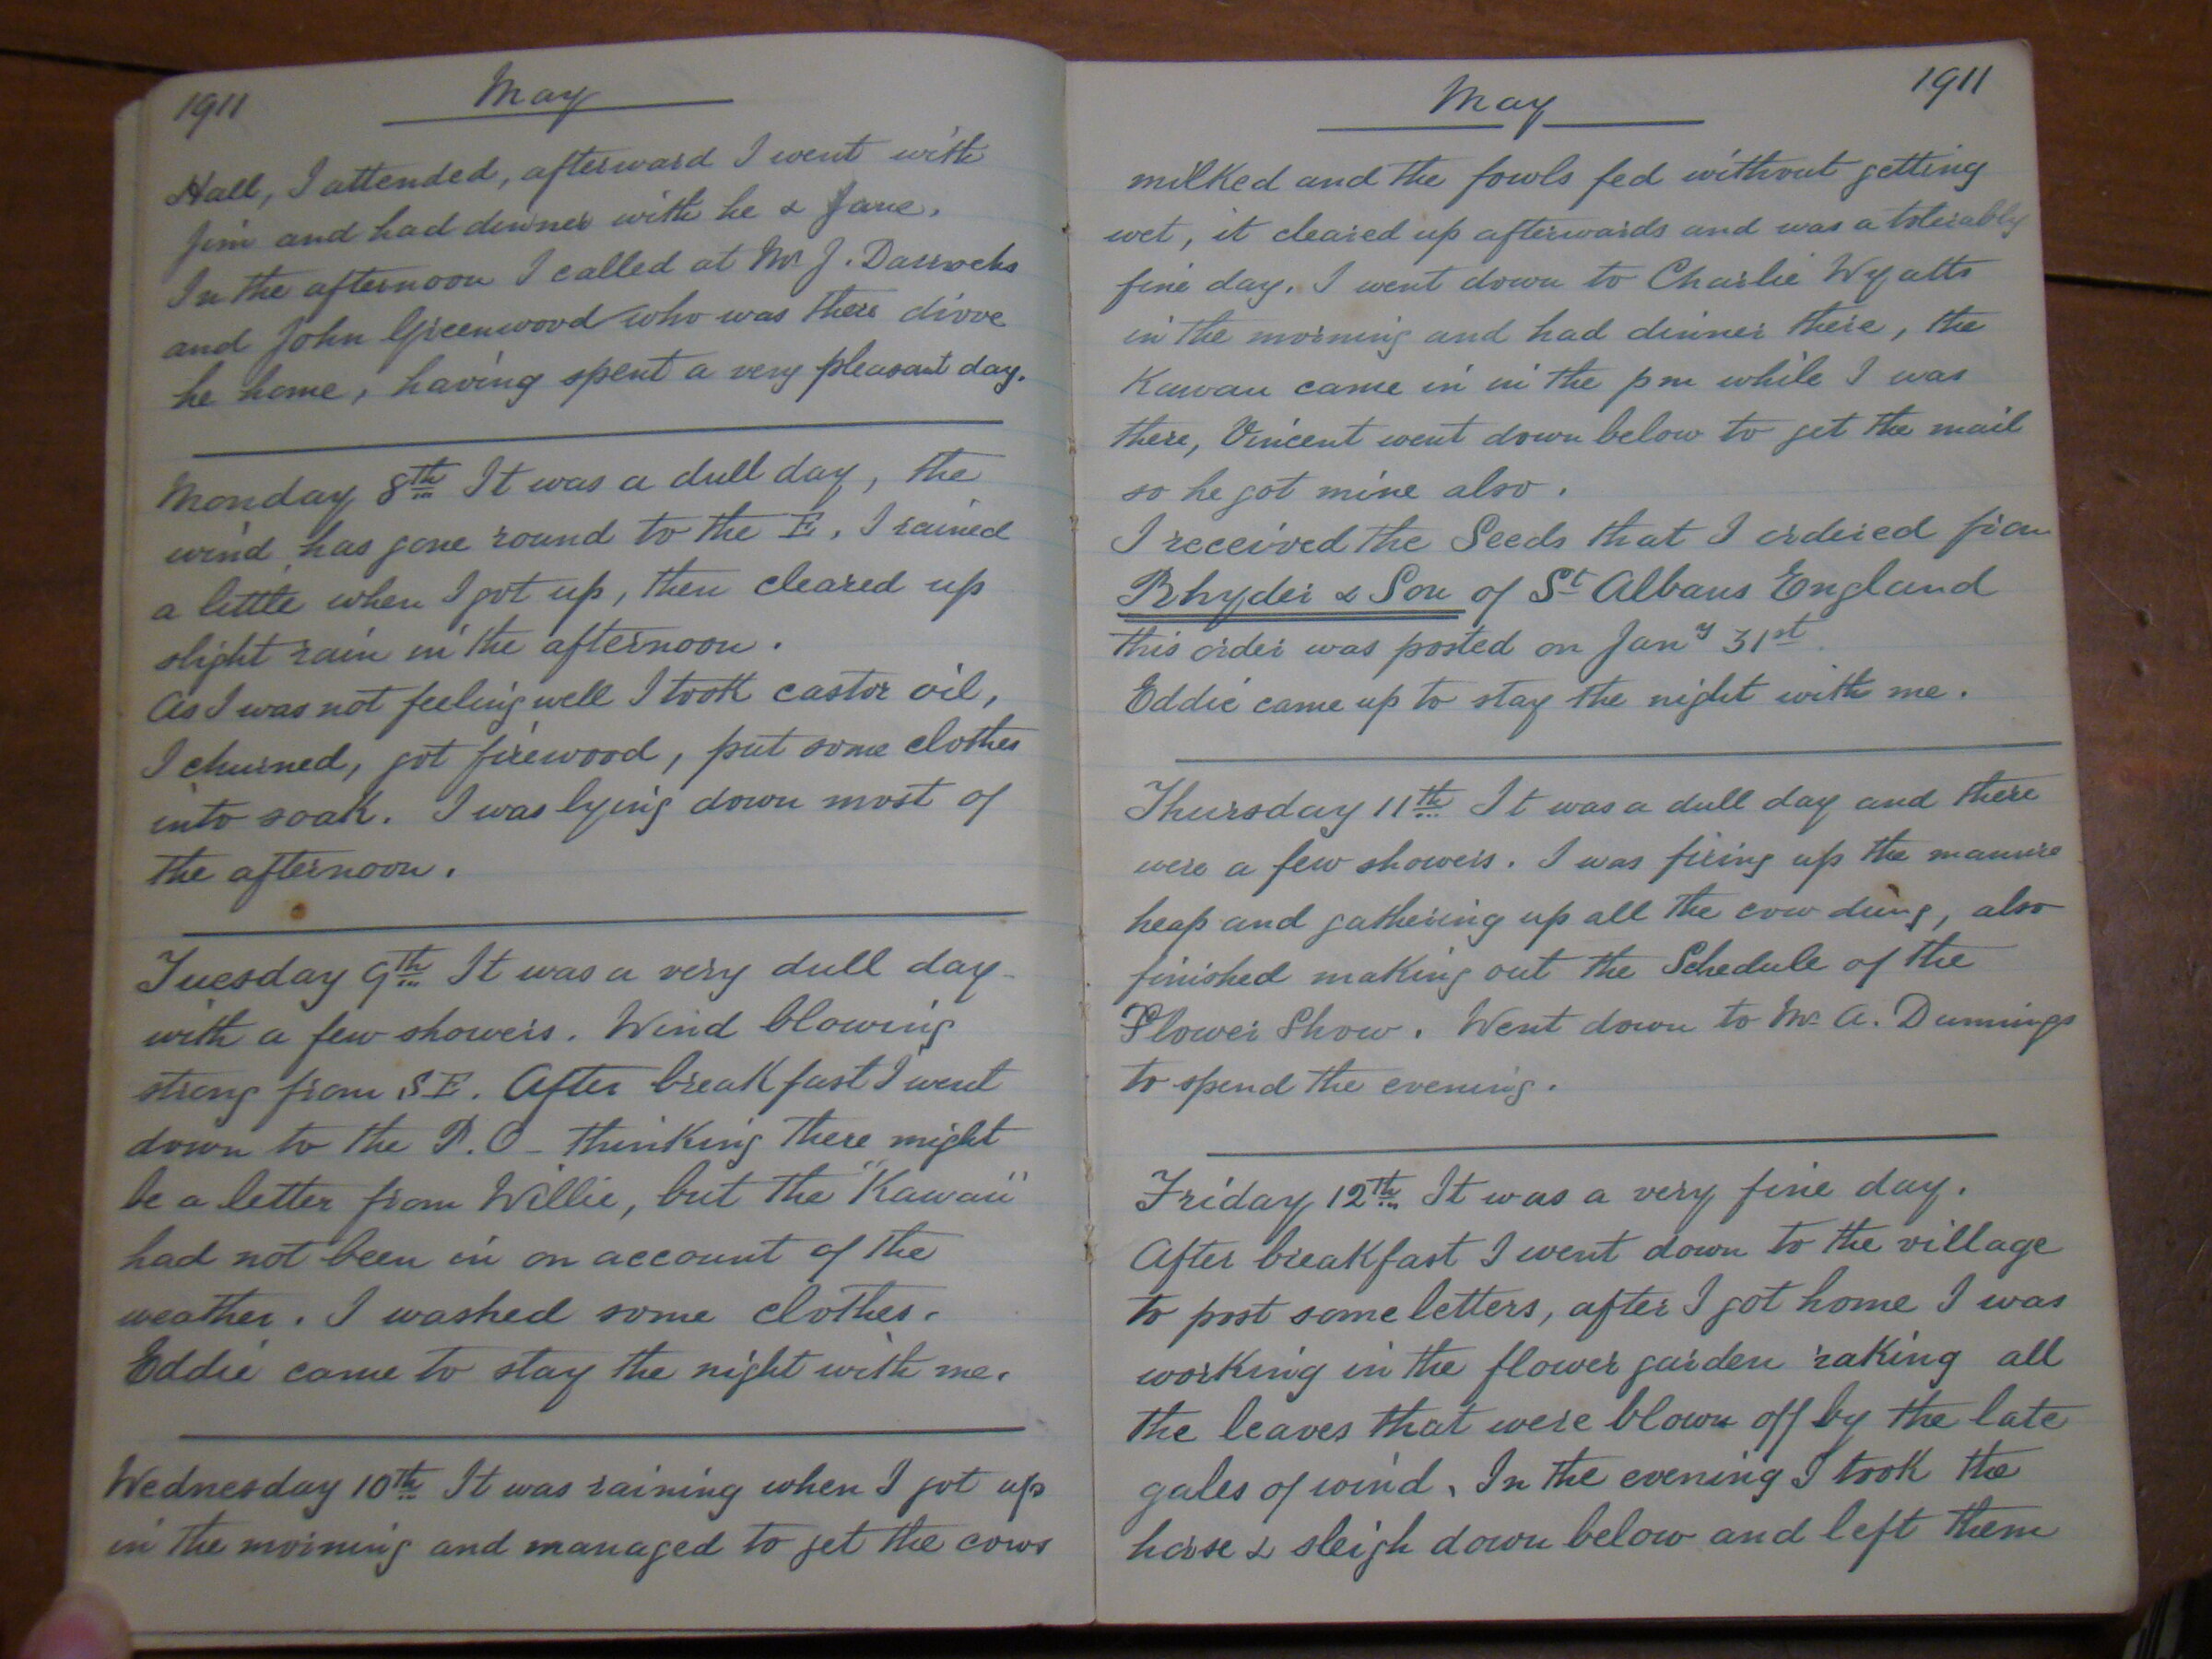 1911 May
Hall, I attended, afterward I went with
Jim and had dinner with he & Jane.
In the afternoon I called at Mr J. Darrochs
and John Greenwood who was there drove
he home, having spent a very pleasant day.
Monday 8th It was a dull day, the
wind has gone round to the E. I rained
a little when I got up, then cleared up
slight rain in the afternoon.
As I was not feeling well I took castor oil,
I churned, got firewood, put some clothes
into soak. I was lying down most of
the afternoon.
Tuesday 9th It was a very dull day
with a few showers. Wind blowing
strong from SE. After breakfast I went
down to the P.O - thinking there might
be a letter from Willie, but the "Kawau"
had not been in on account of the
weather. I washed some clothes.
Eddie came to stay the night with me.
Wednesday 10th It was raining when I got up
in the morning and managed to get the cows
May 1911
milked and the fowls fed without getting
wet, it cleared up afterwards and was a tolerably
fine day. I went down to Charlie Wyatts
in the morning and had dinner there, the
Kawau came in in the pm while I was
there, Vincent went down below to get the mail
so he got mine also.
I received the Seeds that I ordered from
Rhyder & Son of St Albans England
this order was posted on Jany 31st.
Eddie came up to stay the night with me.
Thursday 11th It was a dull day and there
were a few showers. I was fixing up the manure
heap and gathering up all the cow dung, also
finished making out the Schedule of the
Flower Show. Went down to Mr A. Dunnings
to spend the evening.
Friday 12th It was a very fine day.
After breakfast I went down to the village
to post some letters, after I got home I was
working in the flower garden raking all
the leaves that were blown off by the late
gales of wind. In the evening I took the
horse & sleigh down below and left them